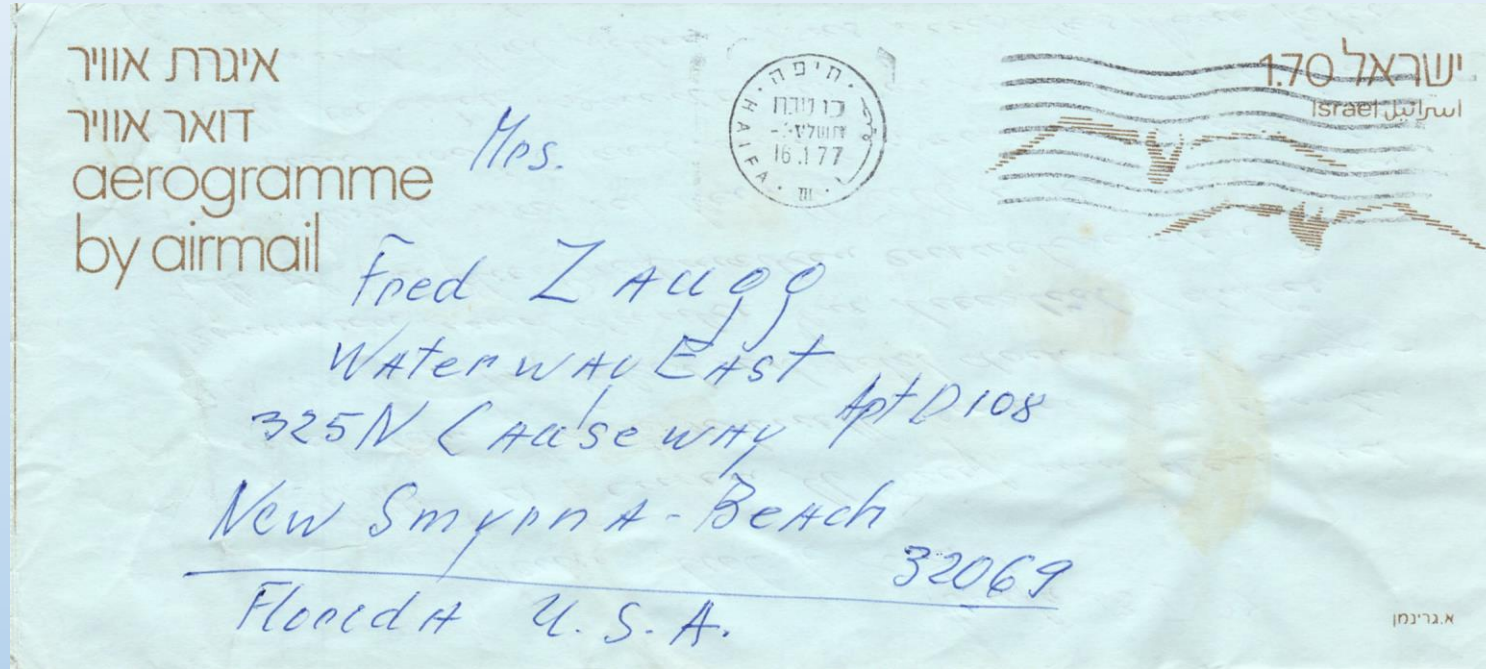 איגרת אוויר
דואר אוויר
aerogramme
by airmail
חיפה
HAIFA
16.1.77
ישראל 1.70
Israel اسرائيل
Mrs.
Fred Zaugg
Waterway East
325 N Causeway Apt D108
New Smyrna-Beach
32069
Florida U.S.A.
א.גרינמן